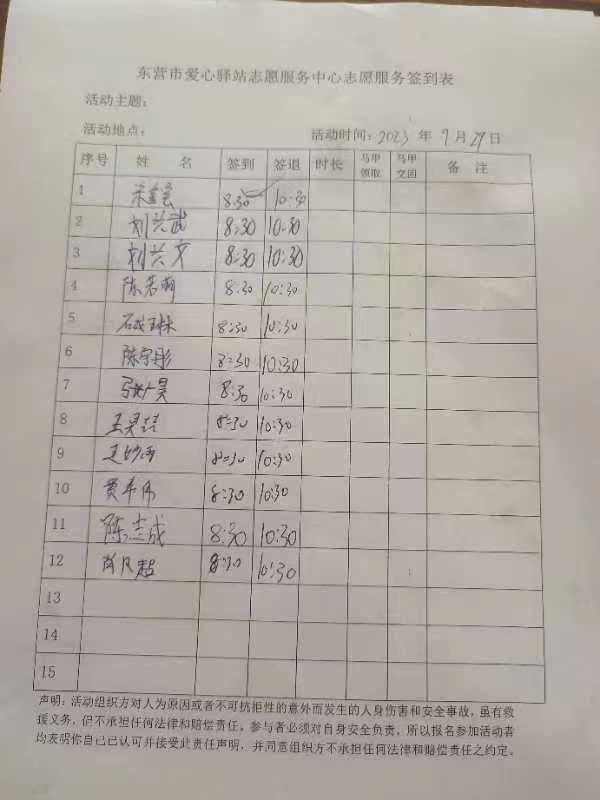 东营市爱心驿站志愿服务中心志愿服务签到表
活动主题：
活动地点： 活动时间：2023 年 9 月 29 日
序号 姓 名 签到 签退 时长 马甲领取 马甲交回 备 注
1 8:30 10:30
2 刘兴武 8:30 10:30
3 刘兴文 8:30 10:30
4 陈若萌 8:30 10:30
5 8:30 10:30
6 陈宇彤 8:30 10:30
7 8:30 10:30
8 8:30 10:30
9 8:30 10:30
10 8:30 10:30
11 陈杰成 8:30 10:30
12 8:30 10:30
13
14
15
声明：活动组织方对人为原因或者不可抗拒性的意外而发生的人身伤害和安全事故，虽有救
援义务，但不承担任何法律和赔偿责任，参与者必须对自身安全负责，所以报名参加活动者
均表明你自己已认可并接受此责任声明，并同意组织方不承担任何法律和赔偿责任之约定。